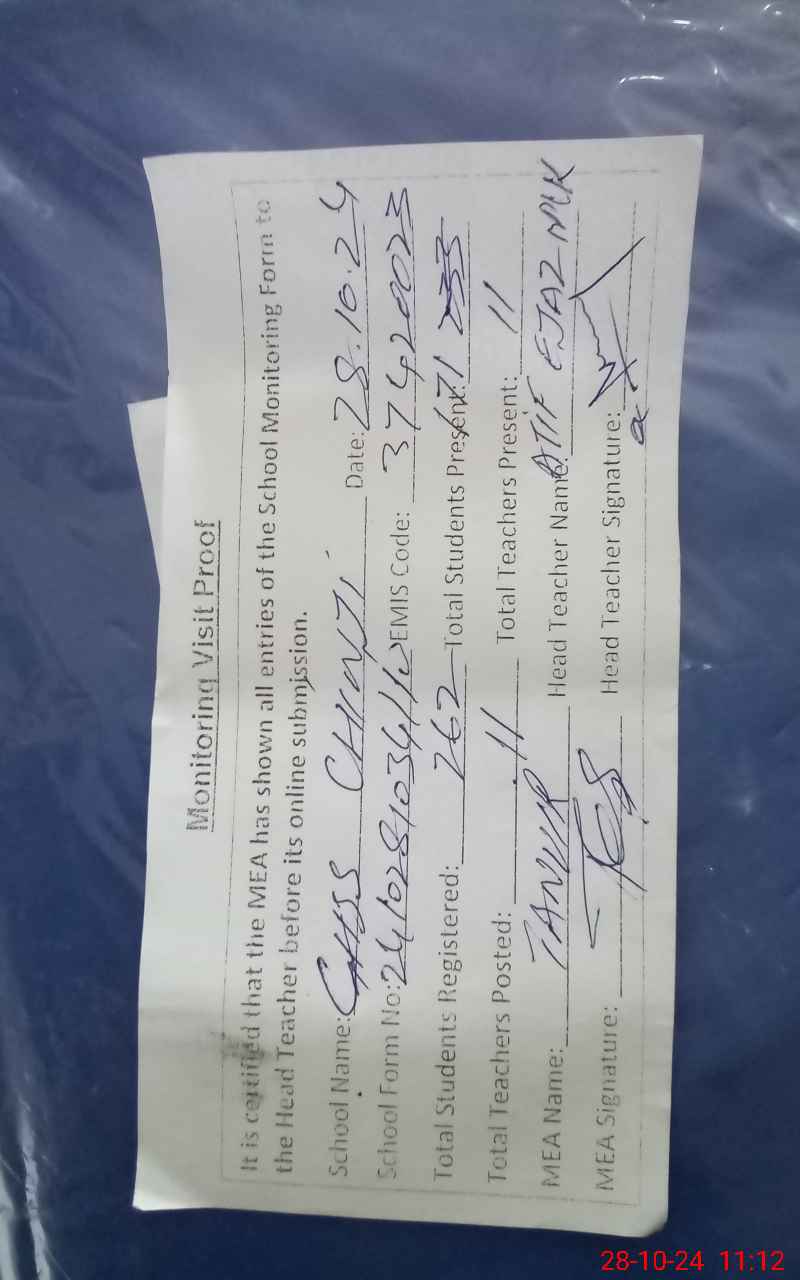 Monitoring Visit Proof
It is certified that the MEA has shown all entries of the School Monitoring Form to
the Head Teacher before its online submission.
School Name: GHSS CHINJI Date: 28.10.24
School Form No: EMIS Code: 37420023
Total Students Registered: 262 Total Students Present: 171
Total Teachers Posted: 11 Total Teachers Present: 11
MEA Name: TANVIR Head Teacher Name: ATIF EJAZ
MEA Signature: Head Teacher Signature:
28-10-24 11:12